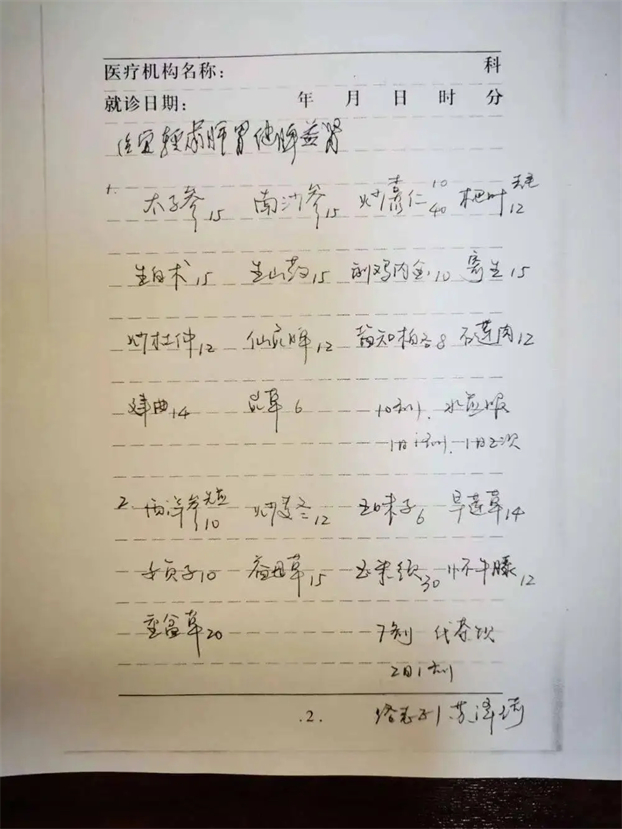 医疗机构名称： 科
就诊日期： 年 月 日 时 分
治宜轻柔脾胃健脾益肾
1. 太子参15 南沙参15 炒枣仁10 40 杷叶 12
生白术15 生山药15 制鸡内金10 寄生15
炒杜仲12 仙灵脾12 盐知柏各8 石莲肉12
建曲14 昆草6 10剂、水煎服
1日1剂、1日2次
2. 西洋参 10 炒麦冬12 五味子6 旱莲草14
女贞子10 益母草15 玉米须30 怀牛膝12
垂盆草20 7剂 代茶饮
2日1剂
.2.